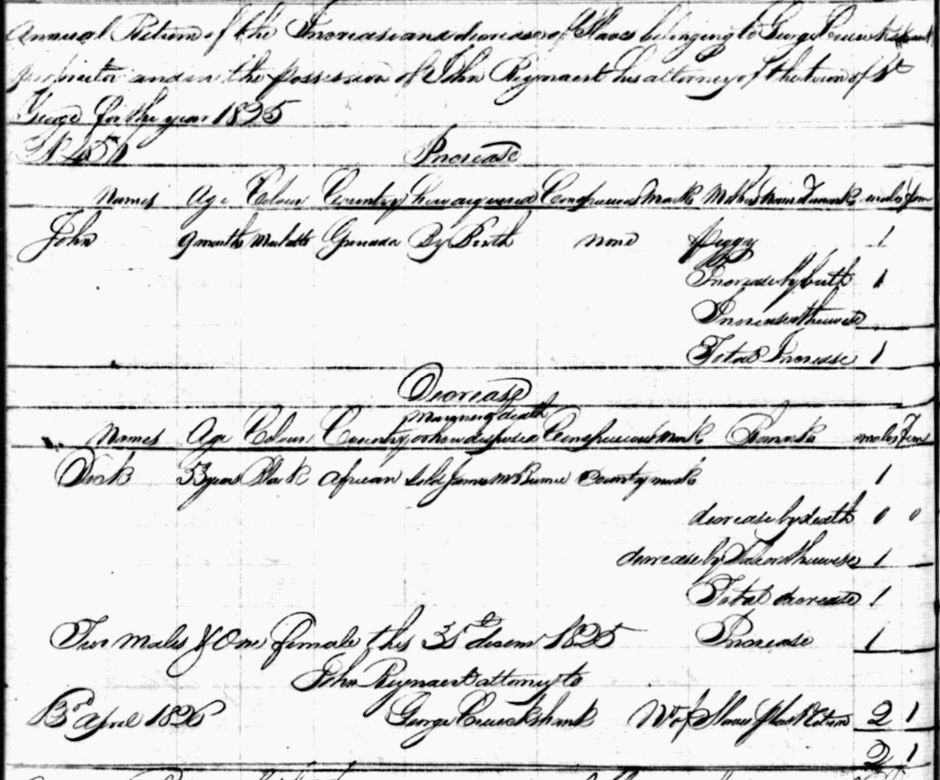 Annual Return of the Increase and decrease of Slaves belonging to George Cruickshank
proprietor and in the possession of John Reynaert his attorney of the town of St
George for the year 1825
Increase
Names Age Colour Country how acquired Conspicuous Marks Mothers name & mark males fem
John 9 months Mulatto Grenada By Birth none Peggy 1
Increase by birth 1
Increase otherwise
Total Increase 1
Decrease
Manner of death
Names Age Colour Country or how disposed Conspicuous Mark Remarks males Fem
Dick 33 years Black African Sold James Country marks 1
decrease by death 0 0
decrease by Sale or otherwise 1
Total decrease 1
Two males & One female this 31st decem 1825 Increase 1
John Reynaert attorney to
April 1826 George Cruickshank No of Slaves last Return 2 1
2 1